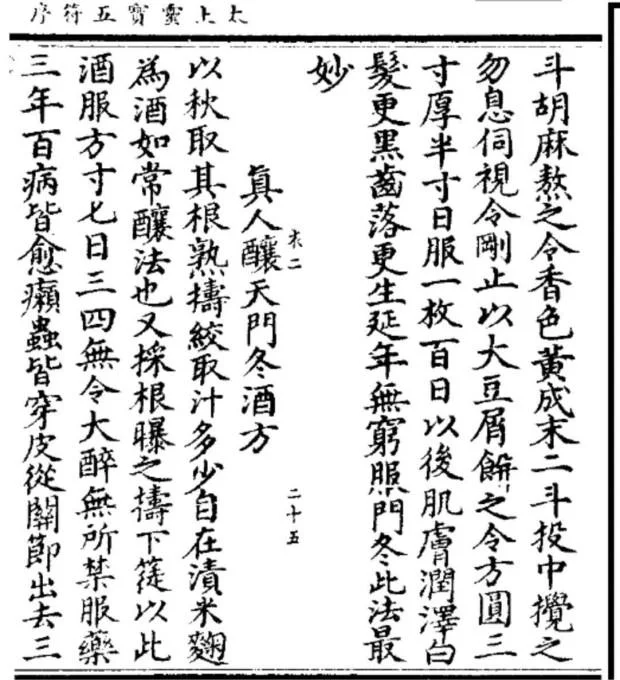 太上靈寶五符序
斗胡麻熬之令香色黃成末二斗投中攪之
勿息伺視令剛止以大豆屑餅之令方圓三
寸厚半寸日服一枚百日以後肌膚潤澤白
髮更黑齒落更生延年無窮服門冬此法最
妙
衣二
二十五
真人釀天門冬酒方
以秋取其根熟擣絞取汁多少自在漬米麴
為酒如常釀法也又採根曝之擣下簁以此
酒服方寸七日三四無令大醉無所禁服藥
三年百病皆愈癩蟲皆穿皮從關節出去三